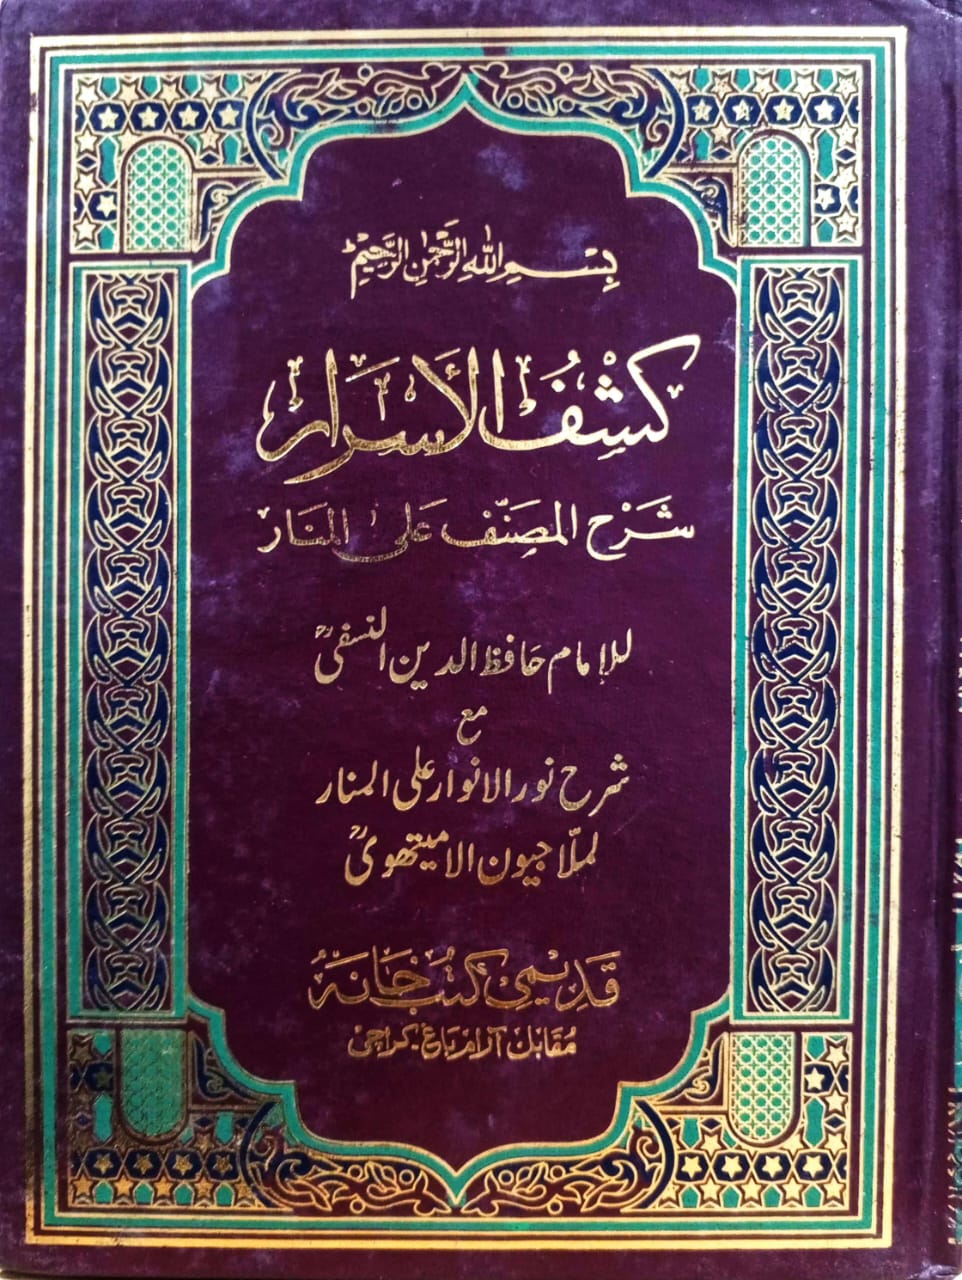 بِسْمِ اللهِ الرَّحْمٰنِ الرَّحِيْمِ
كَشْفُ الْأَسْرَارِ
شَرْح المصَنِّف عَلى المنَار
للإمام حافظ الدين النسفىؒ
مع
شرح نور الانوار على المنار
لملّاجيون الاميتھوىؒ
قَدِيْمِىْ كُتُبْ خَانَهْ
مُقَابِلْ آرَامْ بَاغْ۔ كَرَاچِىْ